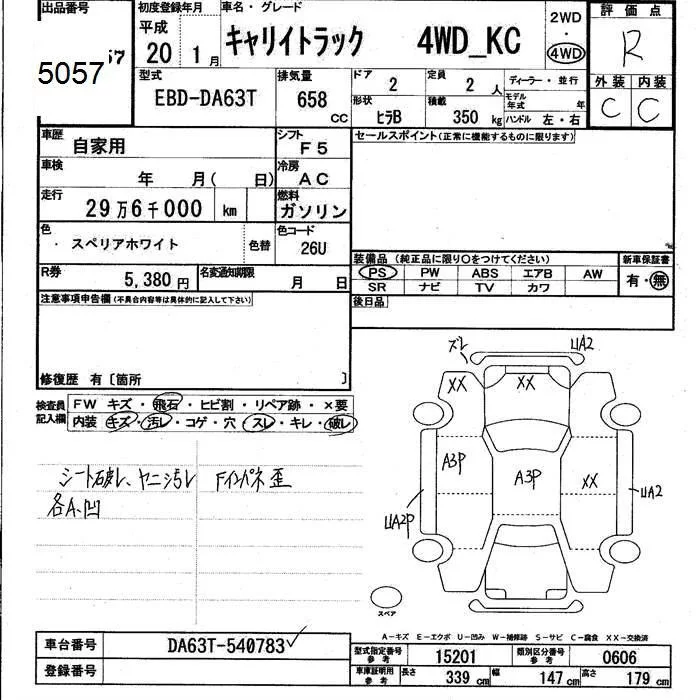 出品番号 初度登録年月 車名・グレード 評価点
平成 2WD
57 20 1月 キャリイトラック 4WD_KC ・ R
5057 4WD
型式 排気量 ドア 定員 ディーラー・並行 外装 内装
EBD-DA63T 658 CC 2 2人 モデル年式 年 C C
形状 積載
ヒラB 350 kg ハンドル 左・右
車歴 自家用 シフト F5 セールスポイント(正常に機能するものに限ります)
車検 年 月( 日) 冷房 AC
走行 29万6千000 km 燃料 ガソリン
色 スペリアホワイト 色替 色コード 26U
装備品(純正品に限り○をつけてください) 新車保証書
R券 5,380円 名変通知期限 月 日 PS PW ABS エアB AW 有・無
SR ナビ TV カワ
注意事項申告欄(不具合内容等は具体的に記入して下さい) 後日品
修復歴 有〔箇所 〕
検査員記入欄 FW キズ・飛石・ヒビ割・リペア跡・×要
内装 キズ・汚レ・コゲ・穴・スレ・キレ・破レ
シート破レ、ヤニ汚レ Fインパネ歪
各A、凹
ズレ UA2
XX XX
A3P A3P XX
UA2P UA2
スペア
A-キズ E-エクボ U-凹み W-補修跡 S-サビ C-腐食 XX-交換済
車台番号 DA63T-540783
型式指定番号 参考 15201 類別区分番号 参考 0606
登録番号
車庫証明用 参考 長さ 339 cm 幅 147 cm 高さ 179 cm